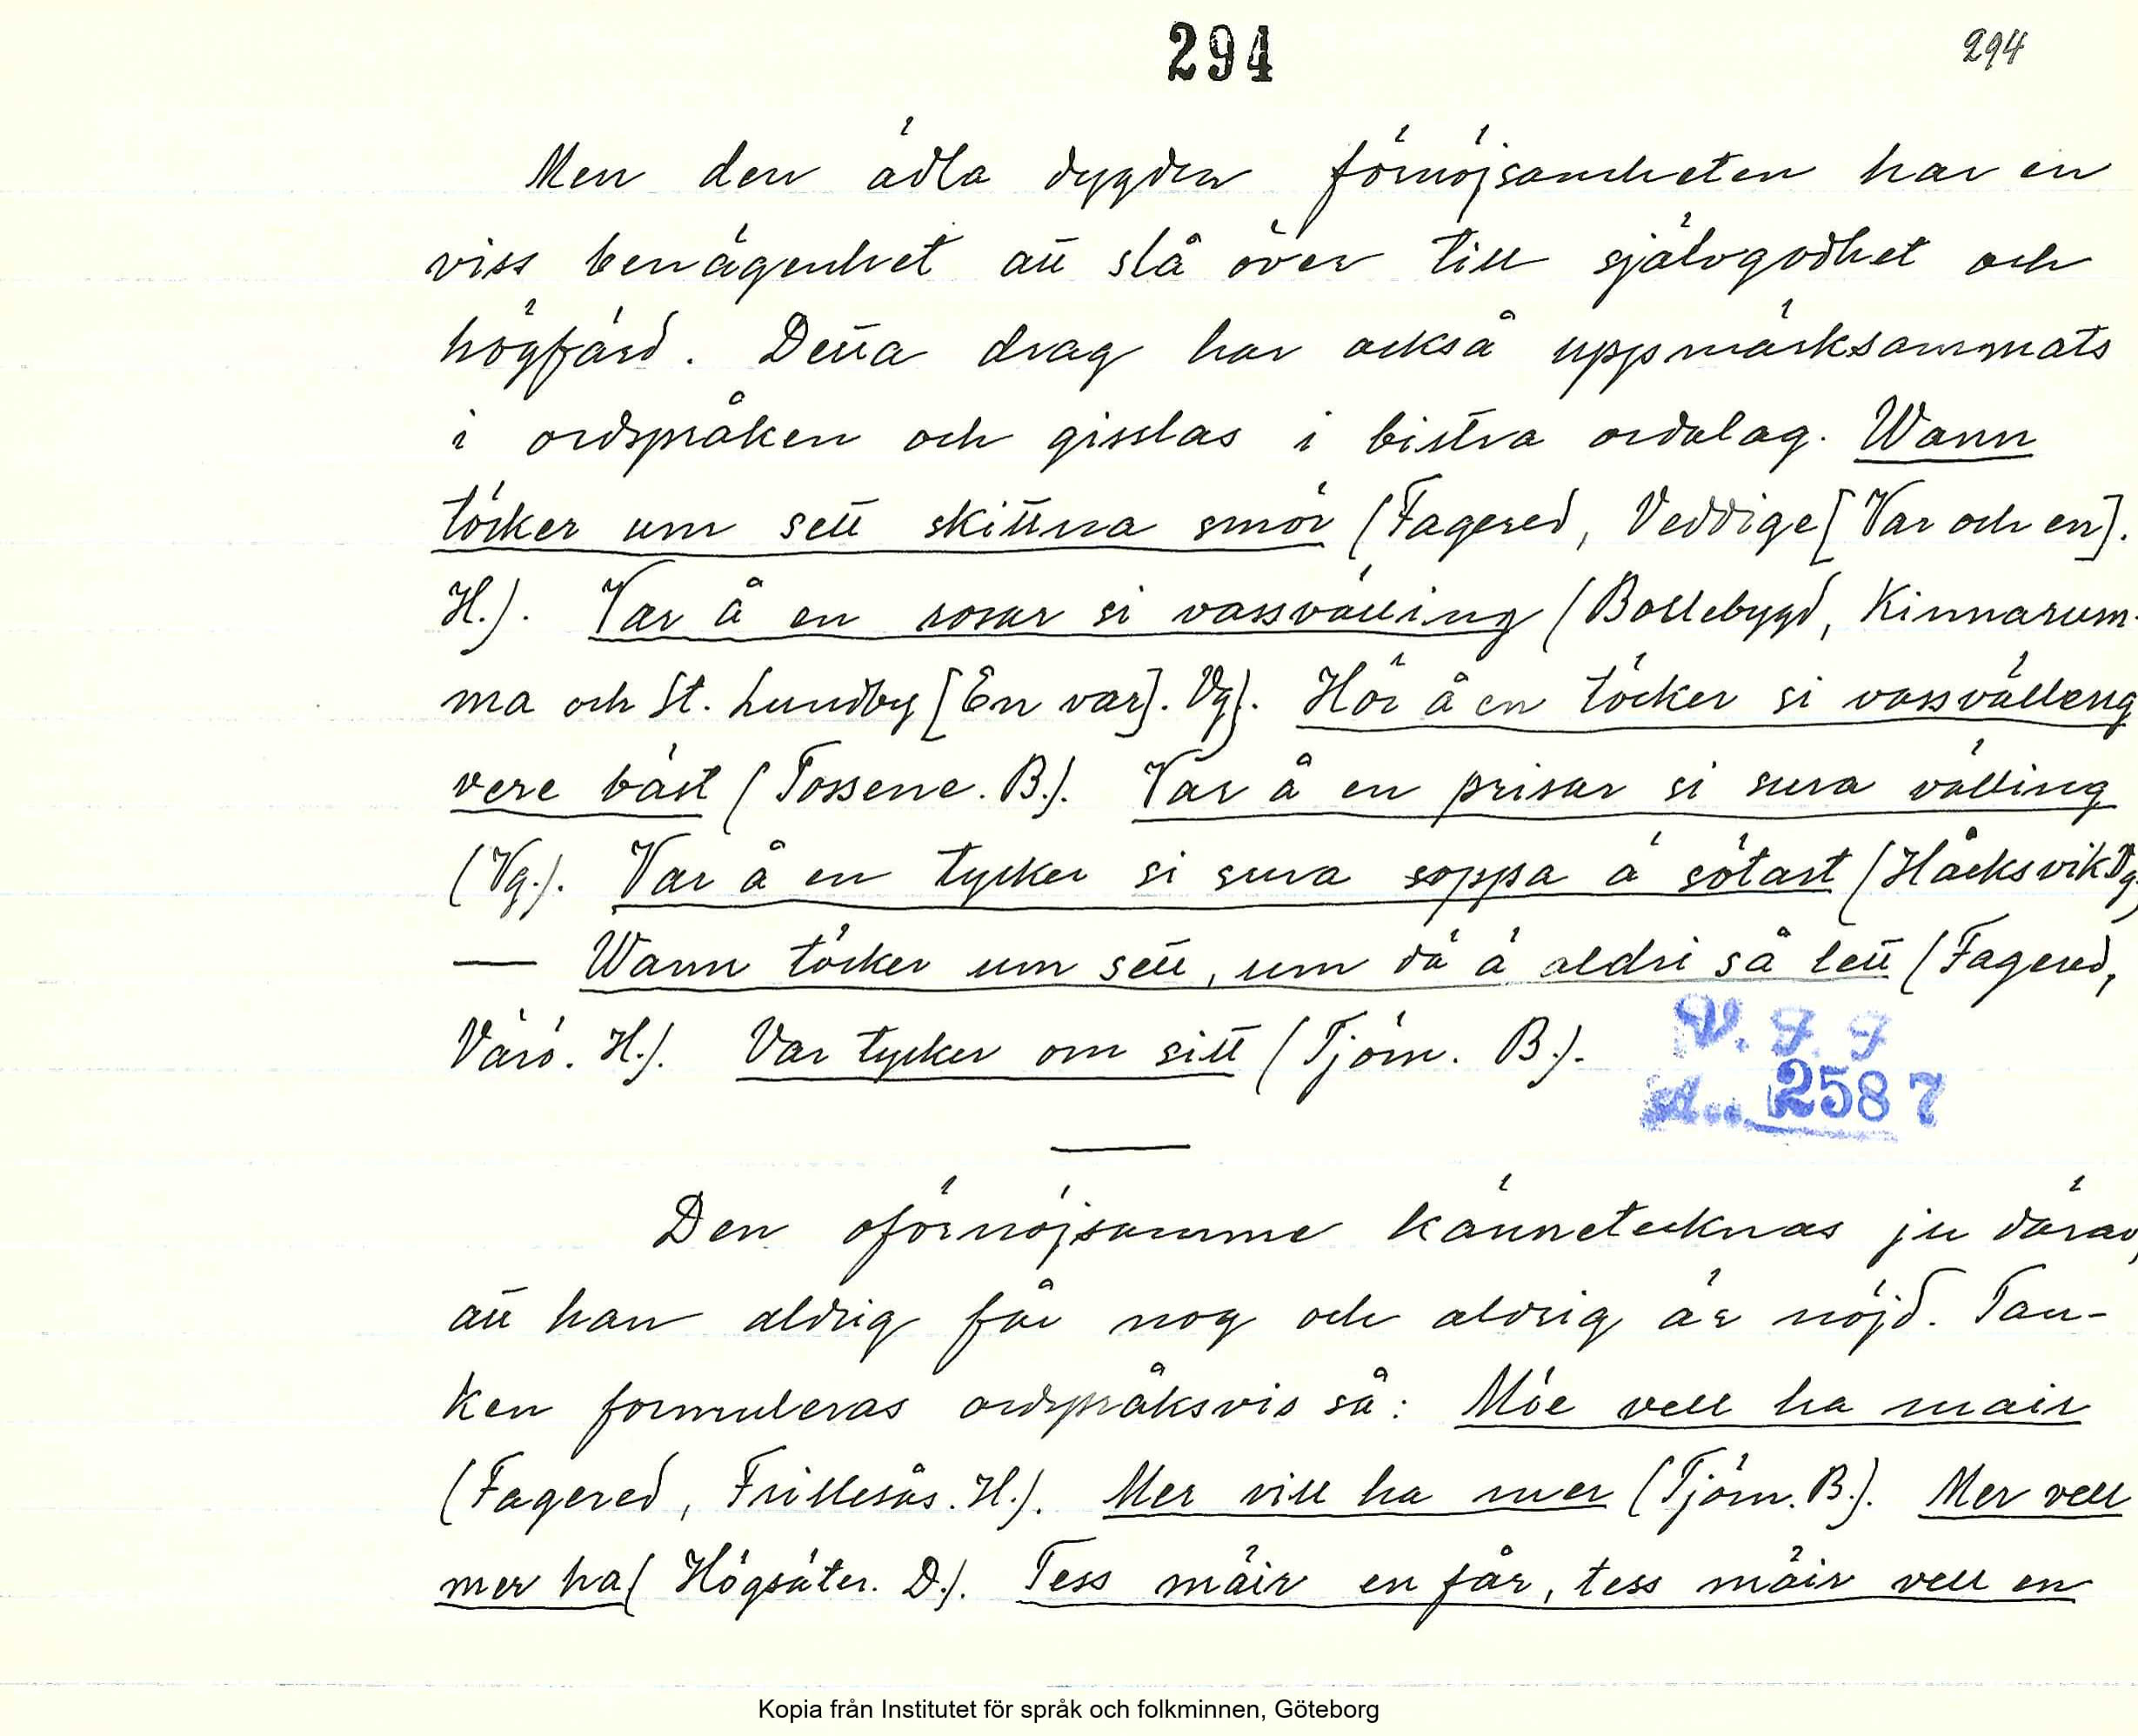 294 294
Men den ädla dygden förnöjsamheten har en
viss benägenhet att slå över till självgodhet och
högfärd. Detta drag har också uppmärksammats
i ordspråken och gisslas i bistra ordalag. Wann
töcker um sett skittna smör (Fagered, Veddige [Var och en].
H.). Var å en rosar si vassvälling (Bollebygd, Kinnarum-
ma och St. Lundby [En var]. Vg). Hör å en töcker si vassvälleng
vere bäst (Tossene. B.). Var å en prisar si sura välling
(Vg.). Var å en tycker si sura soppa ä sötast (Håcksvik Vg.)
— Wann töcker um sett, um dä ä aldri så lett (Fagered,
Värö. H.). Var tycker om sitt (Tjörn. B.).
V. F. F
A.. 2587
Den oförnöjsamme kännetecknas ju därav,
att han aldrig får nog och aldrig är nöjd. Tan-
ken formuleras ordspråksvis så: Möe vell ha mair
(Fagered, Frillesås. H.). Mer vill ha mer (Tjörn. B.). Mer vell
mer ha (Högsäter. D.). Tess mäir en får, tess mäir vell en
Kopia från Institutet för språk och folkminnen, Göteborg